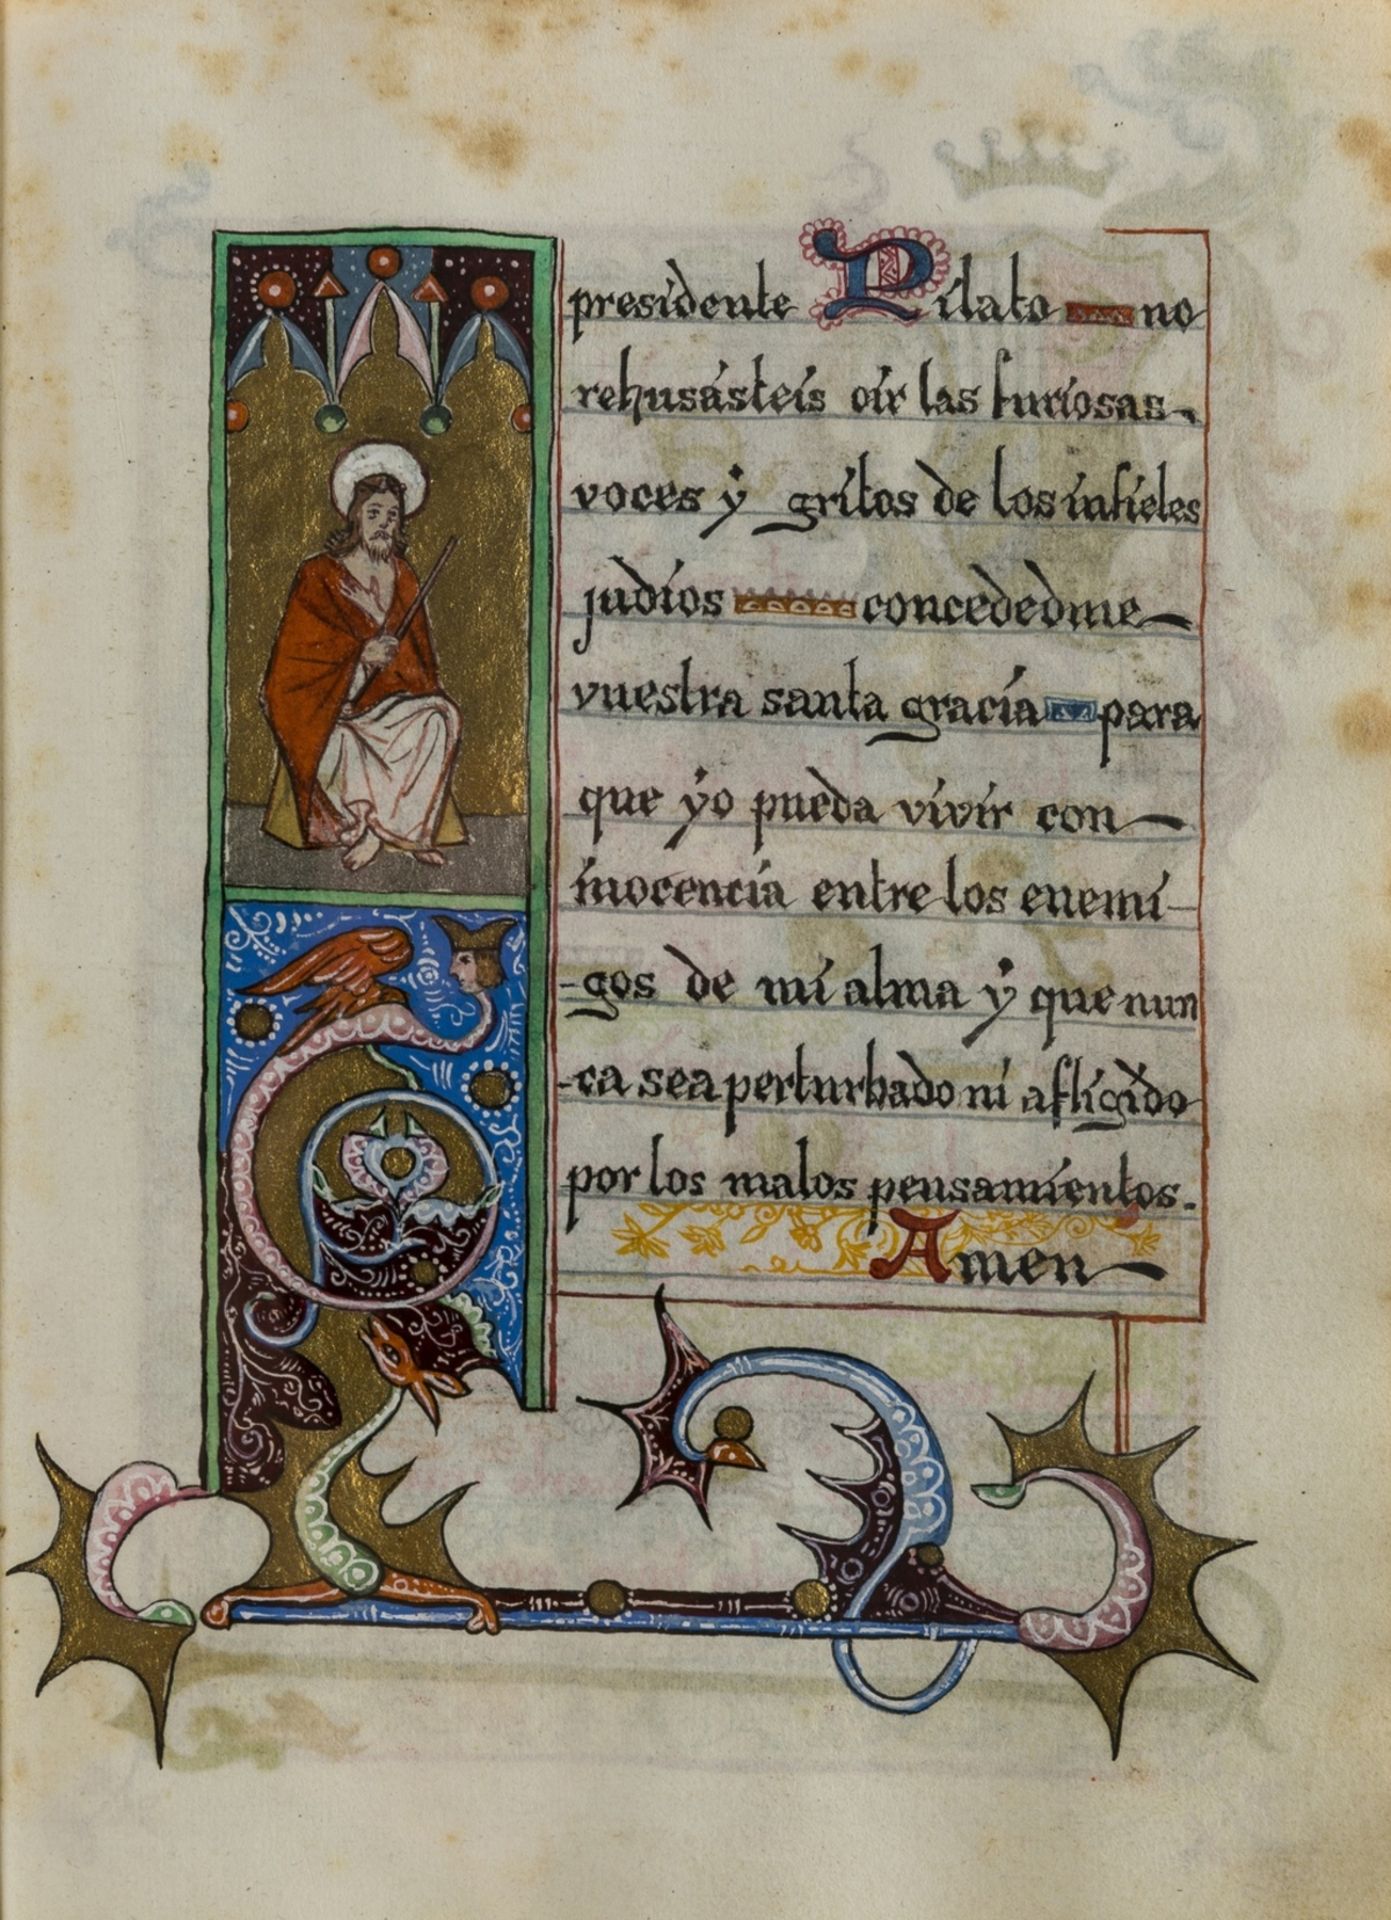 presidente Pilato no
rehusásteis oir las furiosas
voces y gritos de los infieles
judios concededme
vuestra santa gracia para
que yo pueda vivir con
inocencia entre los enemi
-gos de mi alma y que nun
-ca sea perturbado ni afligido
por los malos pensamientos.
Amen